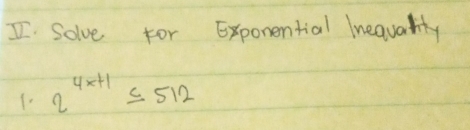 II. Solve for Exponential Inequality
1. 2^{4x+1} ≤ 512